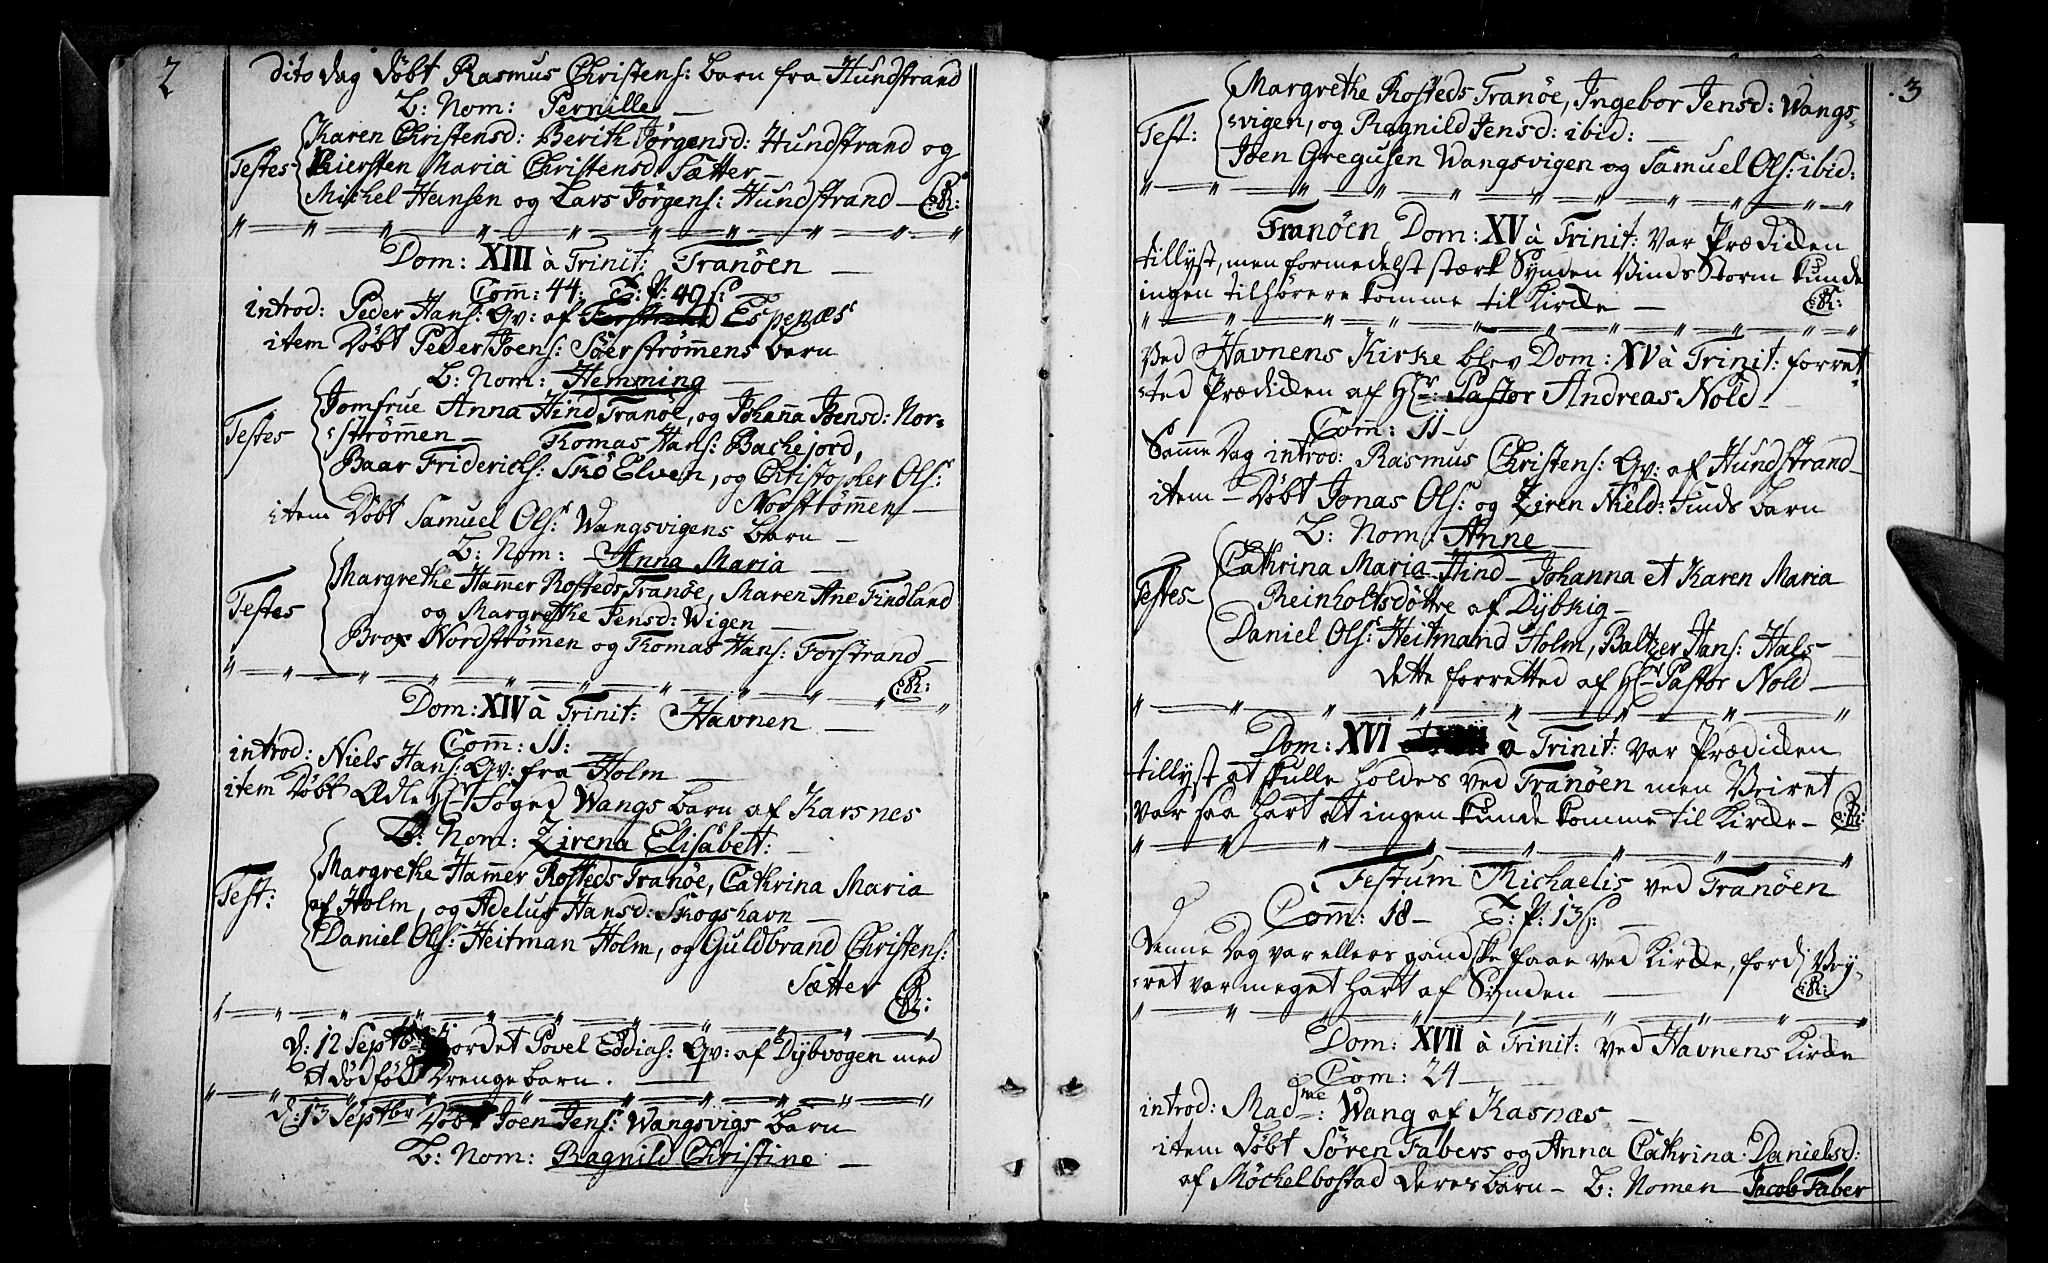 2
dito dag Döbt Rasmus Christens: barn fra Hundstrand
L: Nom: Pernille
Karen Christensd: Berith Jörgensd: Hundstrand og
Testes Kiersten Maria Christensd: Sætter
Michel Hansen og Lars Jörgens: Hundstrand
Dom: XIII à Trinit: Tranöen
Com̄: 44: T: P: 40 ſ:
introd: Peder Hans: Qv: af Espenæs
item Döbt Peder Joens: Söerström̄ens barn
L: Nom: Hemming
Jomfrue Anna Hind Tranöe, og Johan̄a Joensd: Nor-
Testes ström̄en Tomas Hans: Backejord,
Baar Friderichs: Skö Elven, og Christopher Ols:
Nordström̄en
item Döbt Samuel Ols: Wangsvigens barn
L: Nom: Anna Maria
Margrethe Ham̄er Rosteds Tranöe, Maren Ane Findland
Testes og Margrethe Jensd: Wigen
Brox Nordström̄en og Tomas Hans: Forstrand
Dom: XIV à Trinit: Havnen
Com̄: 11:
introd: Niels Hans: Qv: fra Holm
item Döbt Ædle Hr Foged Wangs barn af Karsnes
L: Nom: Zirena Elisabett:
Margrethe Ham̄er Rosteds Tranöe, Cathrina Maria
Test: af Holm, og Adelus Hansd: Skogshavn
Daniel Ols: Heitman Holm, og Guldbrand Christens:
Sætter
d: 12 Septbr jordet Povel Eddias: Qv: af Dybvogen med
et dödföd Drengebarn.
d: 13 Septbr Döbt Joen Jens: Wangsvigs barn
L: Nom: Ragnild Christine
3
Margrethe Rosteds Tranöe, Ingebor Jensd: Wangs-
Test: vigen, og Ragnild Jensd: ibid:
Joen Gregusen Wangsvigen og Samuel Ols: ibid:
Tranöen Dom: XV à Trinit: var Prædicken
tillyst, men formedelst stærk Synden Vinds Storm kunde
ingen tilhörere komme til Kircke
Ved Havnens Kirke blev Dom: XV à Trinit: forret
-ted Prædicken af Hr: Pastor Andreas Nöld
Com̄: 11
Sam̄e Dag introd: Rasmus Christens: Qv: af Hundstrand
item Döbt Jonas Ols: og Ziren Nield: Finds barn
L: Nom: Anne
Cathrina Maria Hind Johanna et Karen Maria
Testes Reinholtsdöttre af Dybkig
Daniel Ols: Heitmand Holm, Baltzer Hans: Hals
dette forretted af Hr Pastor Nöld
Dom: XVI à Trinit: var Prædicken
tillyst at skulle holdes ved Tranöen men Veiret
var saa hart at ingen kunde komme til Kircke
Festum Michaelis ved Tranöen
Com̄: 18 T: P: 13 ſ:
Denne Dag var ellers gandske faae ved Kircke, fordj Vey-
ret var meget hart af Synden
Dom: XVII à Trinit: ved Havnens Kircke
Com: 24
introd: Madme: Wang af Kasnæs
item döbt Sören Fabers og Anna Cathrina Danielsd:
af Möckelbostad deres barn L: Nomen Jacob Faber